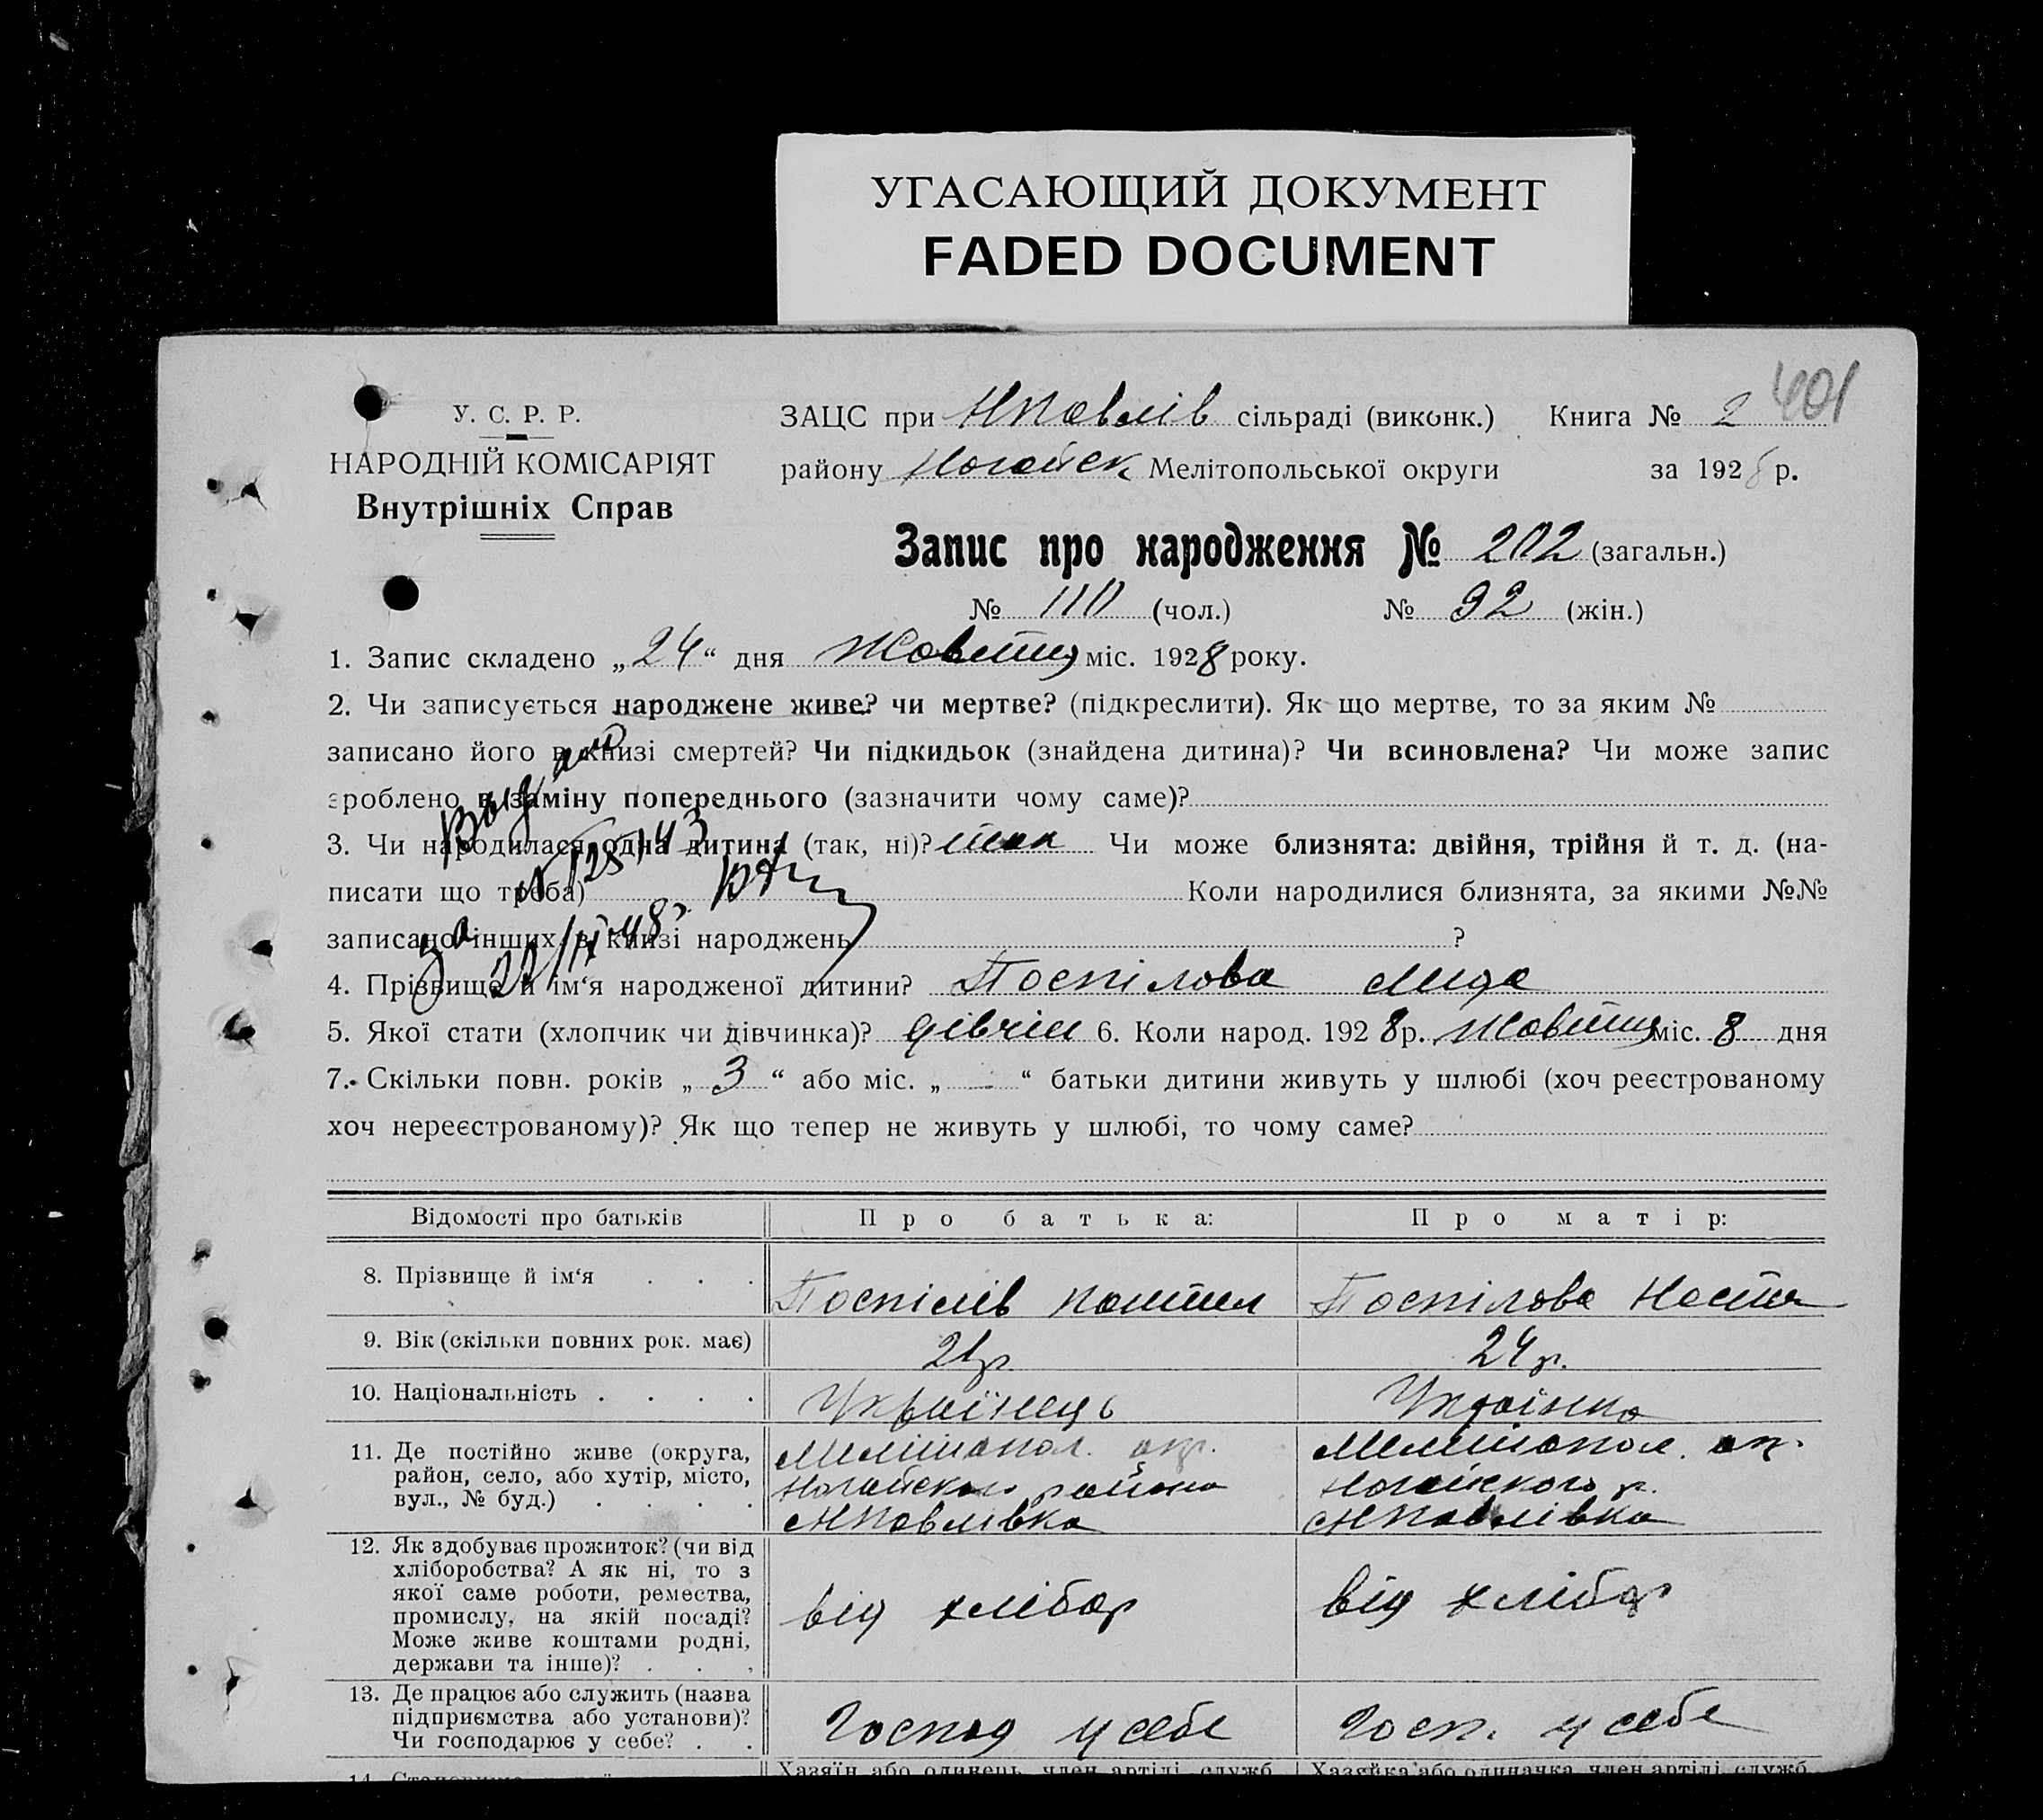 УГАСАЮЩИЙ ДОКУМЕНТ
FADED DOCUMENT
401
У. С. Р. Р.
НАРОДНІЙ КОМІСАРІЯТ
Внутрішніх Справ
ЗАЦС при НПавлів сільраді (виконк.) Книга № 2
району Ногайськ Мелітопольської округи за 1928 р.
Запис про народження № 202 (загальн.)
№ 110 (чол.) № 92 (жін.)
1. Запис складено „24“ дня Жовтня міс. 1928 року.
2. Чи записується народжене живе? чи мертве? (підкреслити). Як що мертве, то за яким №
записано його в книзі смертей? Чи підкидьок (знайдена дитина)? Чи всиновлена? Чи може запис
зроблено в заміну попереднього (зазначити чому саме)?
3. Чи народилася одна дитина (так, ні)? так Чи може близнята: двійня, трійня й т. д. (на-
писати що треба) Коли народилися близнята, за якими №№
записано інших в книзі народжень ?
4. Прізвище й ім‘я народженої дитини? Поспілова Лида
5. Якої стати (хлопчик чи дівчинка)? дівчин 6. Коли народ. 1928 р. Жовтня міс. 8 дня
7. Скільки повн. років „3“ або міс. „ “ батьки дитини живуть у шлюбі (хоч реєстрованому
хоч нереєстрованому)? Як що тепер не живуть у шлюбі, то чому саме?
Видано
за
Відомості про батьків Про батька: Про матір:
8. Прізвище й ім‘я . . . Поспілів Поспілова Настя
9. Вік (скільки повних рок. має) 21р 24р.
10. Національність . . . . Українець Українка
11. Де постійно живе (округа, Мелітопол. окр. Мелітопол. ок.
район, село, або хутір, місто, Ногайского району Ногайского р.
вул., № буд.) . . . . НПавлівка НПавлівка
12. Як здобуває прожиток? (чи від
хліборобства? А як ні, то з
якої саме роботи, ремества, від хлібор від хлібор
промислу, на якій посаді?
Може живе коштами родні,
держави та інше)? . . .
13. Де працює або служить (назва
підприємства або установи)? Господ у себе Госп. у себе
Чи господарює у себе? . .
Хазяїн або одинець, член артілі, служб. Хазяйка або одиначка, член артілі, служб.